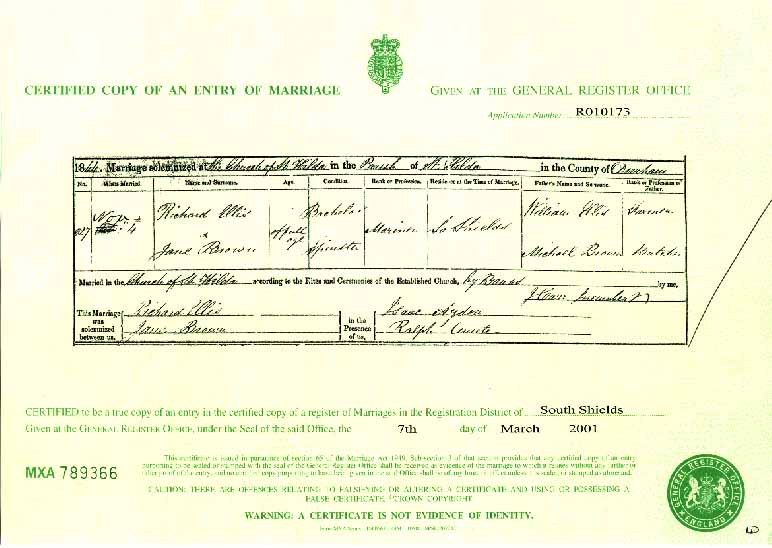 CERTIFIED COPY OF AN ENTRY OF MARRIAGE
GIVEN AT THE GENERAL REGISTER OFFICE
Application Number R010173
Marriage solemnized at the Church of St Hilda in the Parish of St Hilda in the County of Durham
No. When Married. Name and Surname. Age. Condition. Rank or Profession. Residence at the Time of Marriage. Father's Name and Surname. Rank or Profession of Father.
Nov. 4 Richard Ellis of full age Bachelor Mariner So Shields William Ellis Farmer
Jane Brown Spinster Michael Brown
Married in the Church of St Hilda according to the Rites and Ceremonies of the Established Church, by Banns by me,
J Carr Incumbent
This Marriage was solemnized between us, Richard Ellis
Jane Brown
in the Presence of us, Isaac
Ralph
CERTIFIED to be a true copy of an entry in the certified copy of a register of Marriages in the Registration District of South Shields
Given at the GENERAL REGISTER OFFICE, under the Seal of the said Office, the 7th day of March 2001
MXA 789366
This certificate is issued in pursuance of section 65 of the Marriage Act 1949. Sub-section 3 of that section provides that any certified copy of an entry
purporting to be sealed or stamped with the seal of the General Register Office shall be received as evidence of the marriage to which it relates without any further or
other proof of the entry, and no certified copy purporting to have been given in the said Office shall be of any force or effect unless it is sealed or stamped as aforesaid.
CAUTION: THERE ARE OFFENCES RELATING TO FALSIFYING OR ALTERING A CERTIFICATE AND USING OR POSSESSING A
FALSE CERTIFICATE. ©CROWN COPYRIGHT
WARNING: A CERTIFICATE IS NOT EVIDENCE OF IDENTITY.
GENERAL REGISTER OFFICE
ENGLAND